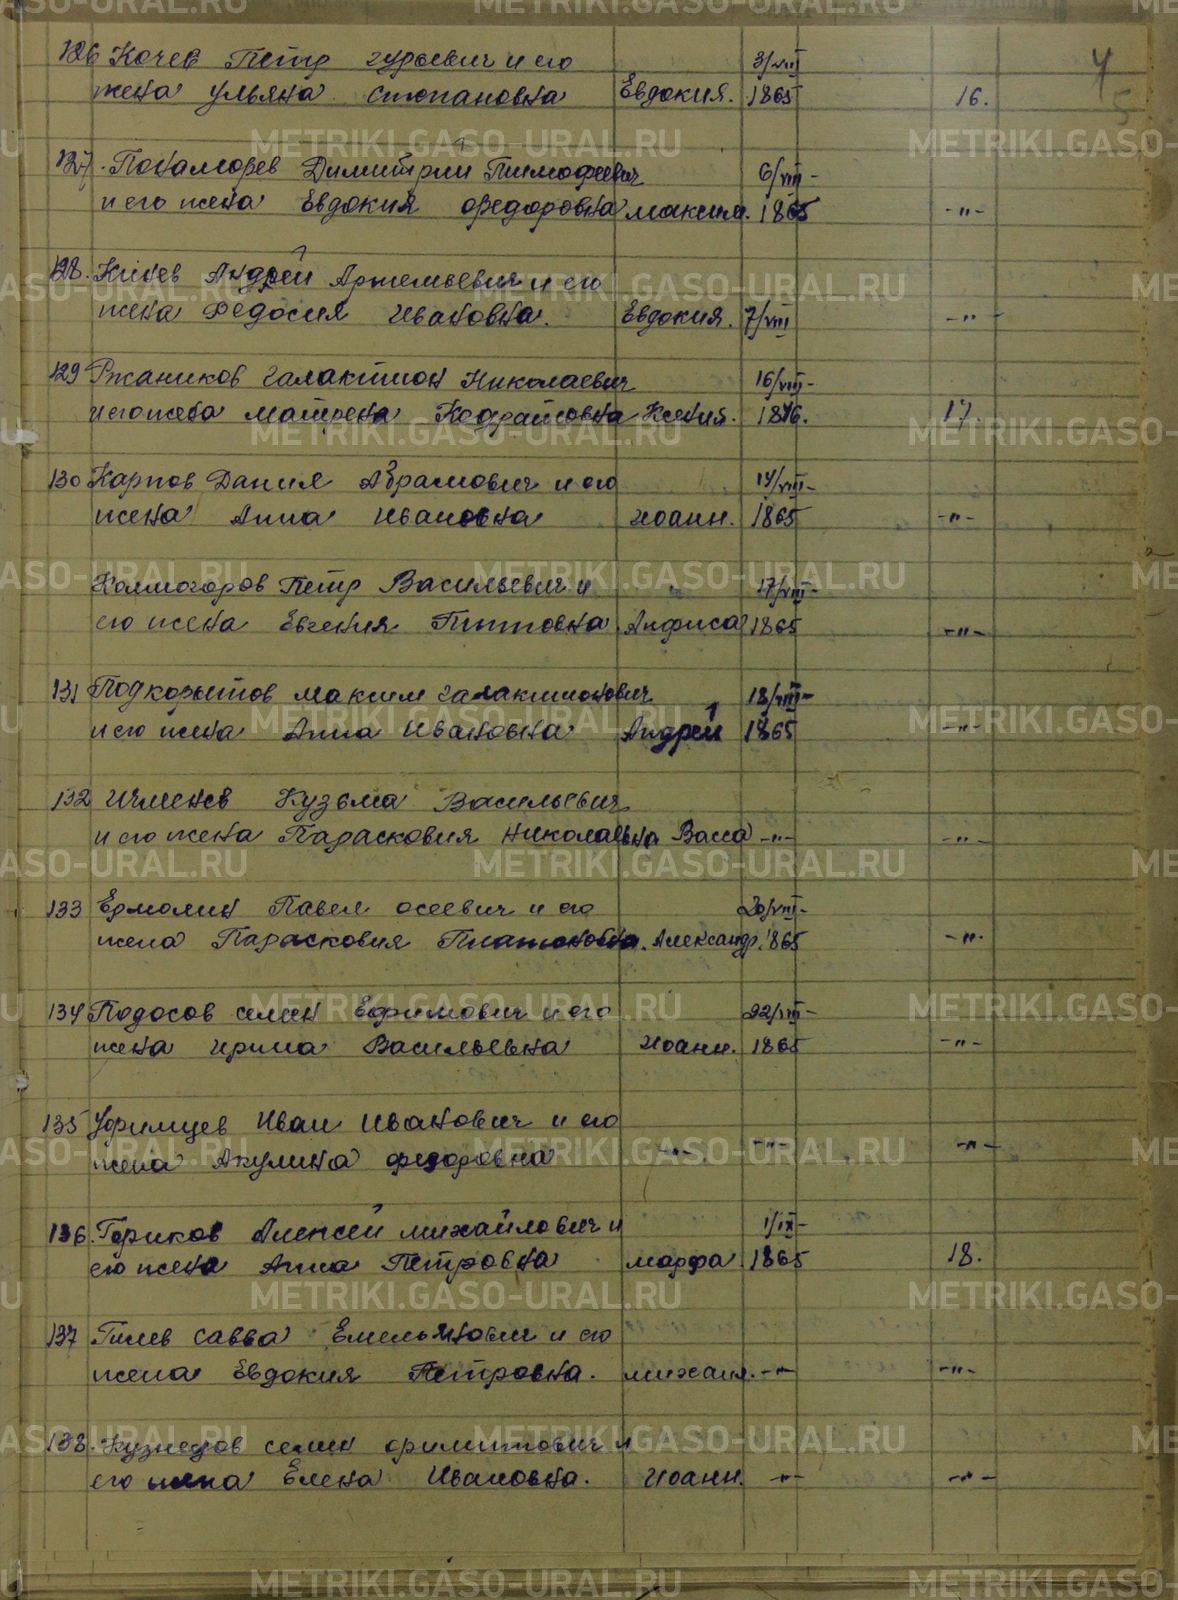 126 Кочев Петр гурьевич и его 3/VIII
жена ульяна степановна Евдокия. 1865 16.
127. Понаморев Димитрий Тимофеевич 6/VIII-
и его жена Евдокия федоровна максим. 1865 -"-
128. Андрей Артемьевич и его
жена Федосия Ивановна. Евдокия. 7/VIII -"-
129 Ржаников галактион Николаевич 16/VIII-
и его жена матрена Кодратовна Ксения. 17.
130 Карпов Данил Абрамович и его 14/VIII-
жена Анна Ивановна иоанн. 1865 -"-
Колмогоров Петр Васильевич и 17/VIII-
его жена Евгения Титовна Анфиса 1865 -"-
131 Подкорытов максим галактионович 18/VIII-
и его жена Анна Ивановна Андрей 1865 -"-
132 Кузьма Васильевич
и его жена Парасковия николаевна Васса -"- -"-
133 Ермолин Павел осеевич и его 20/VIII-
жена Парасковия Платоновна. Александр. 1865 -"-
134 Подосов семен Ефимович и его 22/VIII-
жена ирина Васильевна иоанн. 1865 -"-
135 Уфимцев Иван Иванович и его
жена Акулина федоровна -"- -"- -"-
136. Алексей михайлович и 1/IX-
его жена Анна Петровна марфа 1865 18.
137 Гилев савва Емельянович и его
жена Евдокия Петровна. михаил. -"- -"-
138. Кузнецов семен филиппович и
его жена Елена Ивановна. иоанн. -"- -"-
METRIKI.GASO-URAL.RU